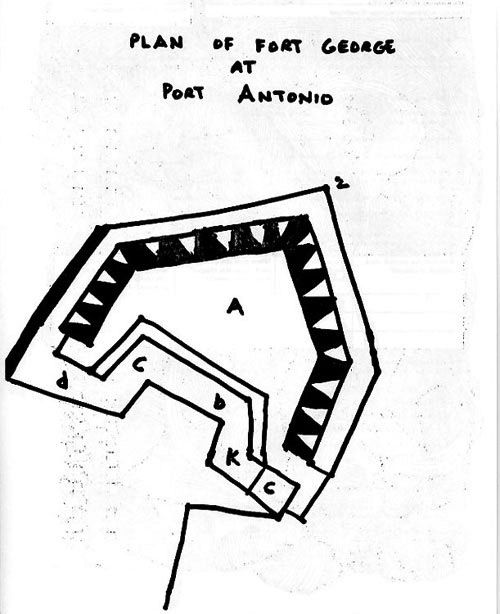 PLAN OF FORT GEORGE
AT
PORT ANTONIO
2
A
C
d
b
K
C